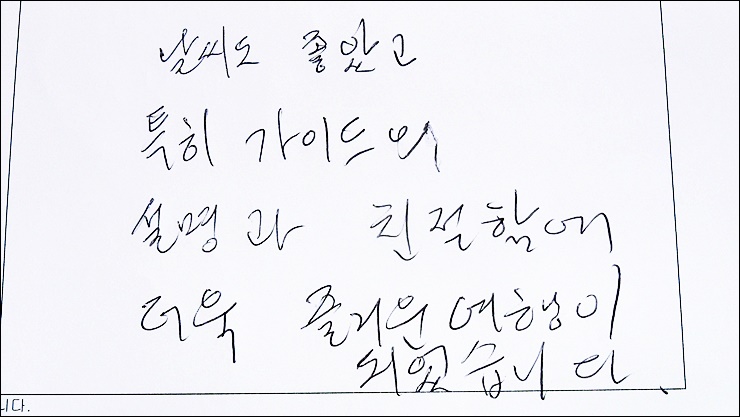 날씨도 좋았고
특히 가이드의
설명과 친절함에
더욱 즐거운 여행이
되었습니다.
니다.